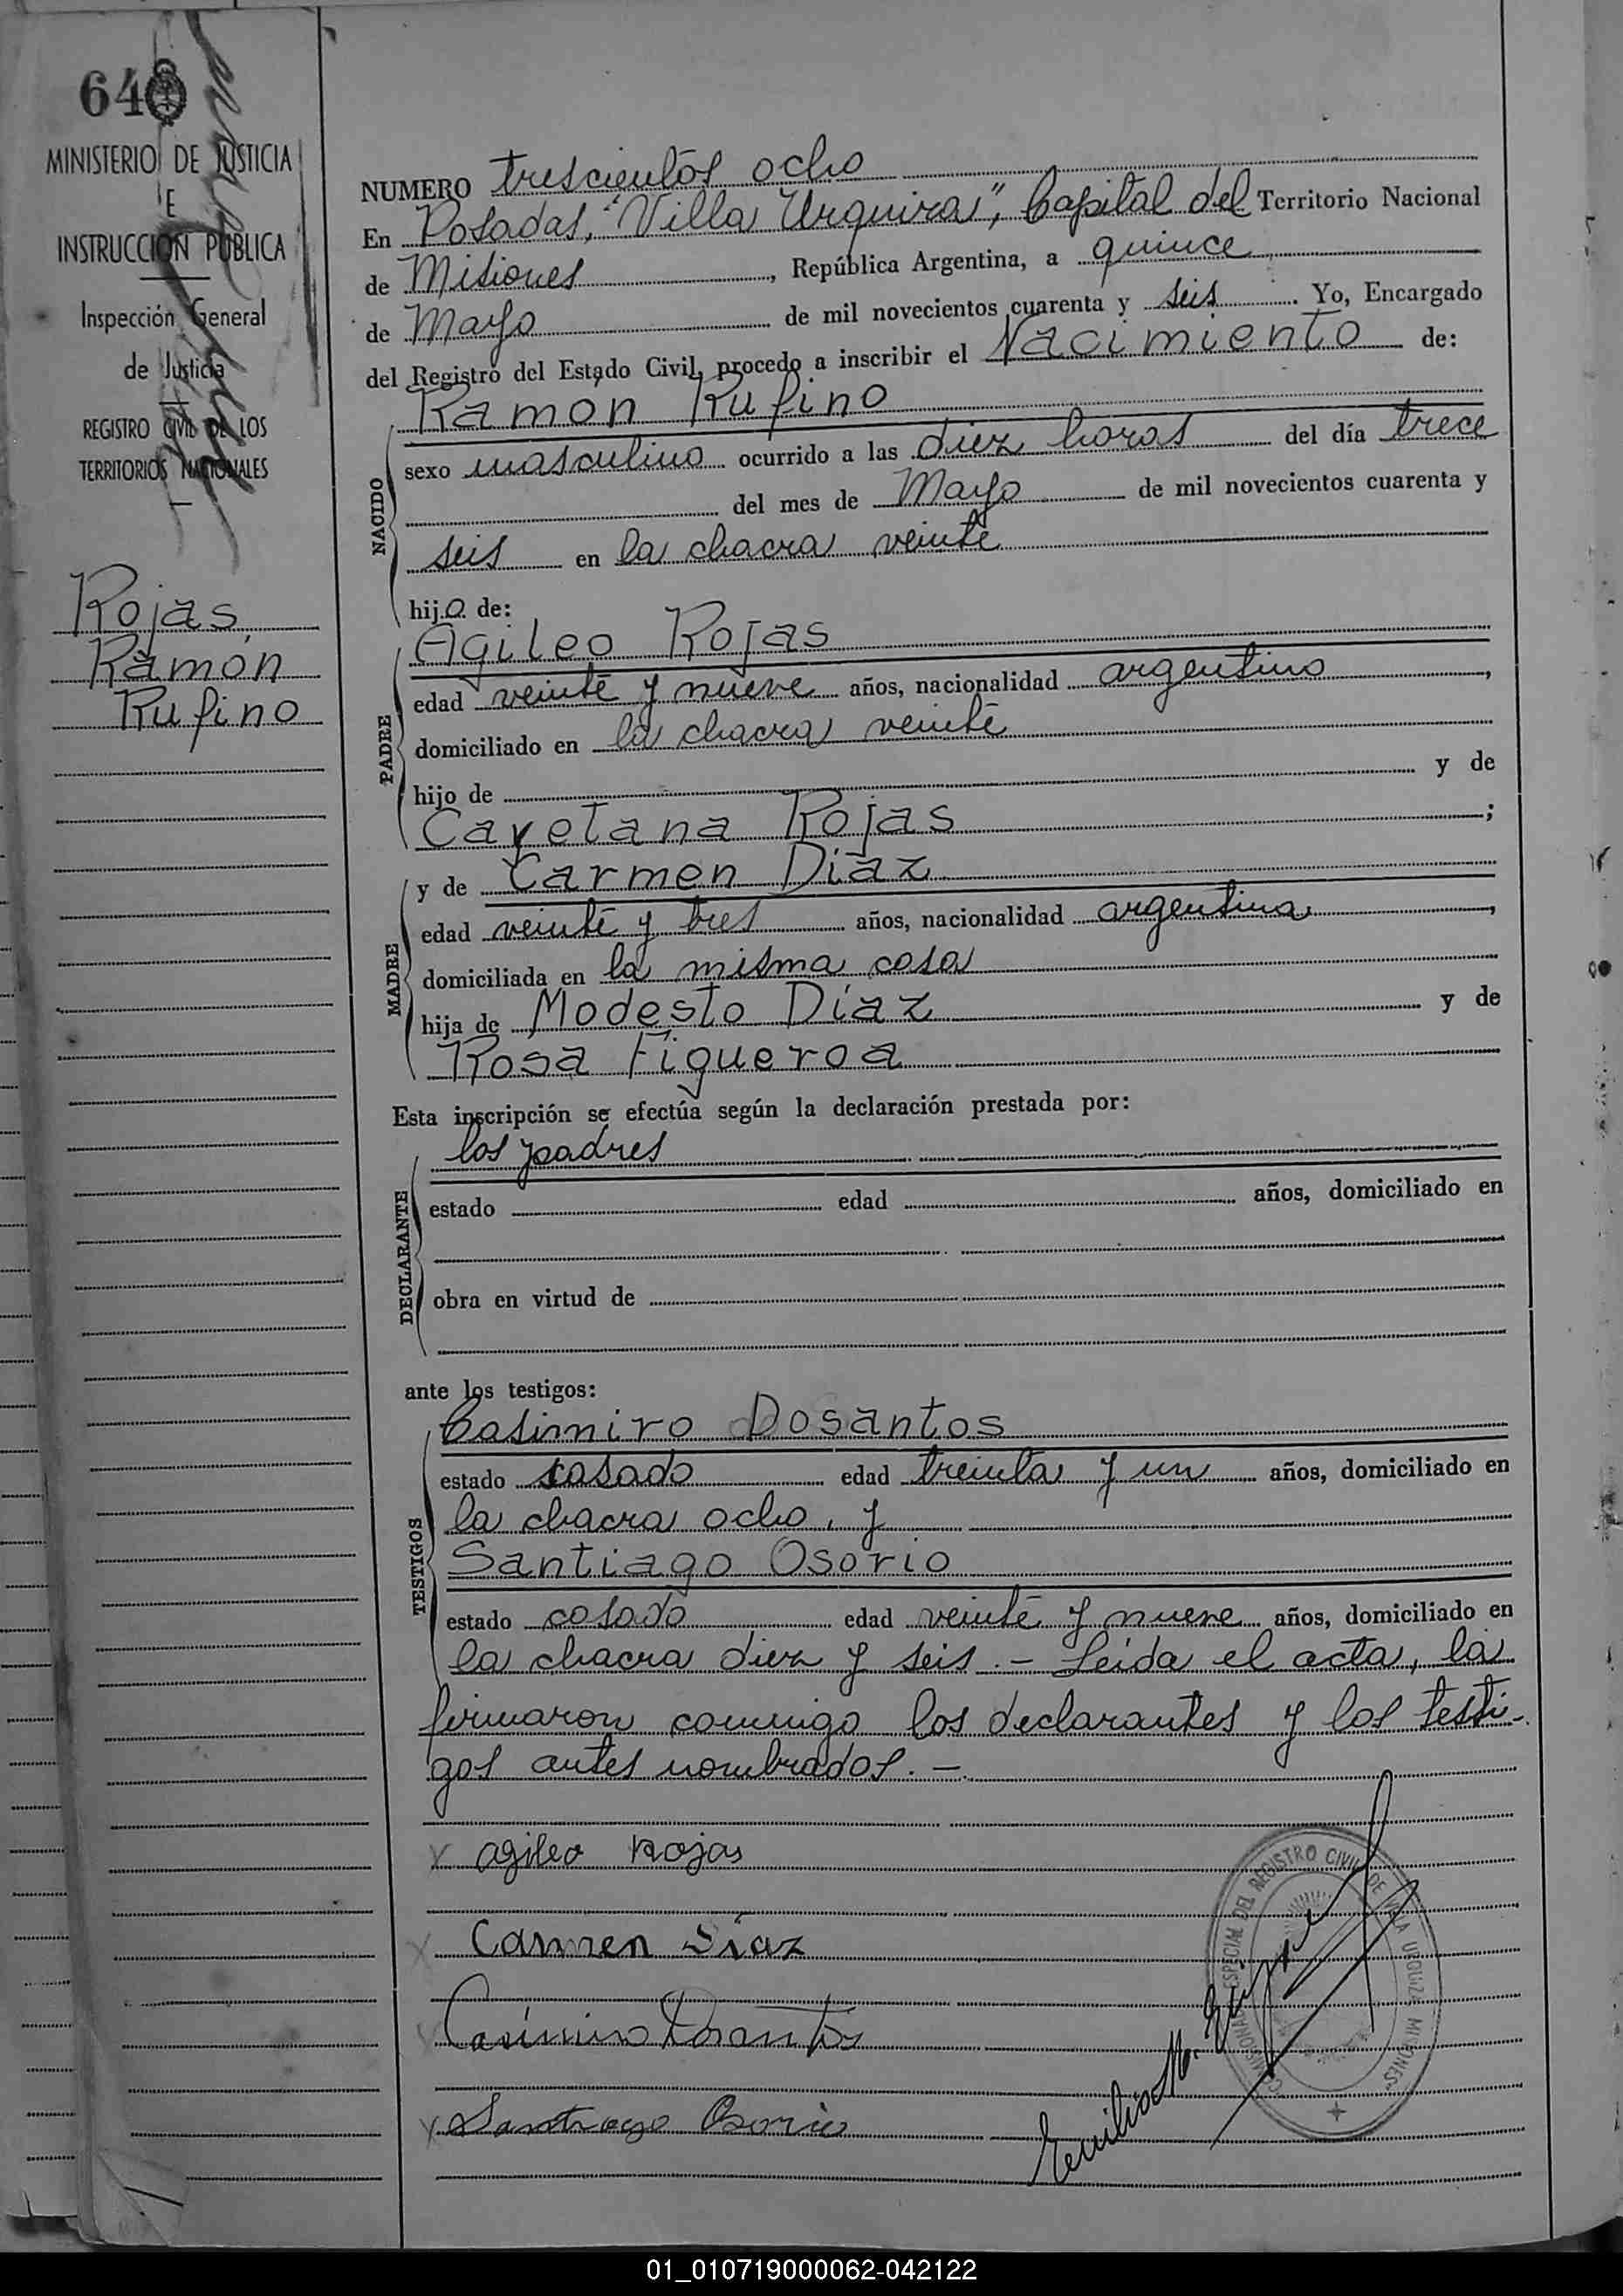 648
MINISTERIO DE JUSTICIA
E
INSTRUCCION PUBLICA
Inspección General
de Justicia
REGISTRO CIVIL DE LOS
TERRITORIOS NACIONALES
Rojas,
Ramón
Rufino
NUMERO trescientos ocho
En Posadas, "Villa Urquiza", Capital del Territorio Nacional
de Misiones, República Argentina, a quince
de Mayo de mil novecientos cuarenta y seis. Yo, Encargado
del Registro del Estado Civil, procedo a inscribir el Nacimiento de:
Ramón Rufino
NACIDO
sexo masculino ocurrido a las diez horas del día trece
del mes de Mayo de mil novecientos cuarenta y
seis en la chacra veinte
hijo de:
Agileo Rojas
PADRE
edad veinte y nueve años, nacionalidad argentino,
domiciliado en la chacra veinte
hijo de y de
Cayetana Rojas;
y de Carmen Díaz
MADRE
edad veinte y tres años, nacionalidad argentina,
domiciliada en la misma casa
hija de Modesto Díaz y de
Rosa Figueroa
Esta inscripción se efectúa según la declaración prestada por:
los padres
DECLARANTE
estado edad años, domiciliado en
obra en virtud de
ante los testigos:
Casimiro Dosantos
TESTIGOS
estado casado edad treinta y un años, domiciliado en
la chacra ocho, y
Santiago Osorio
estado casado edad veinte y nueve años, domiciliado en
la chacra diez y seis.- Leída el acta, la
firmaron conmigo los declarantes y los testi-
gos antes nombrados.-
x agileo Rojas
x Carmen Diaz
x Casimiro Dosantos
x Santiago Osorio
Emilio M.
ESPECIAL DEL REGISTRO CIVIL DE VILLA URQUIZA MISIONES
01_010719000062-042122